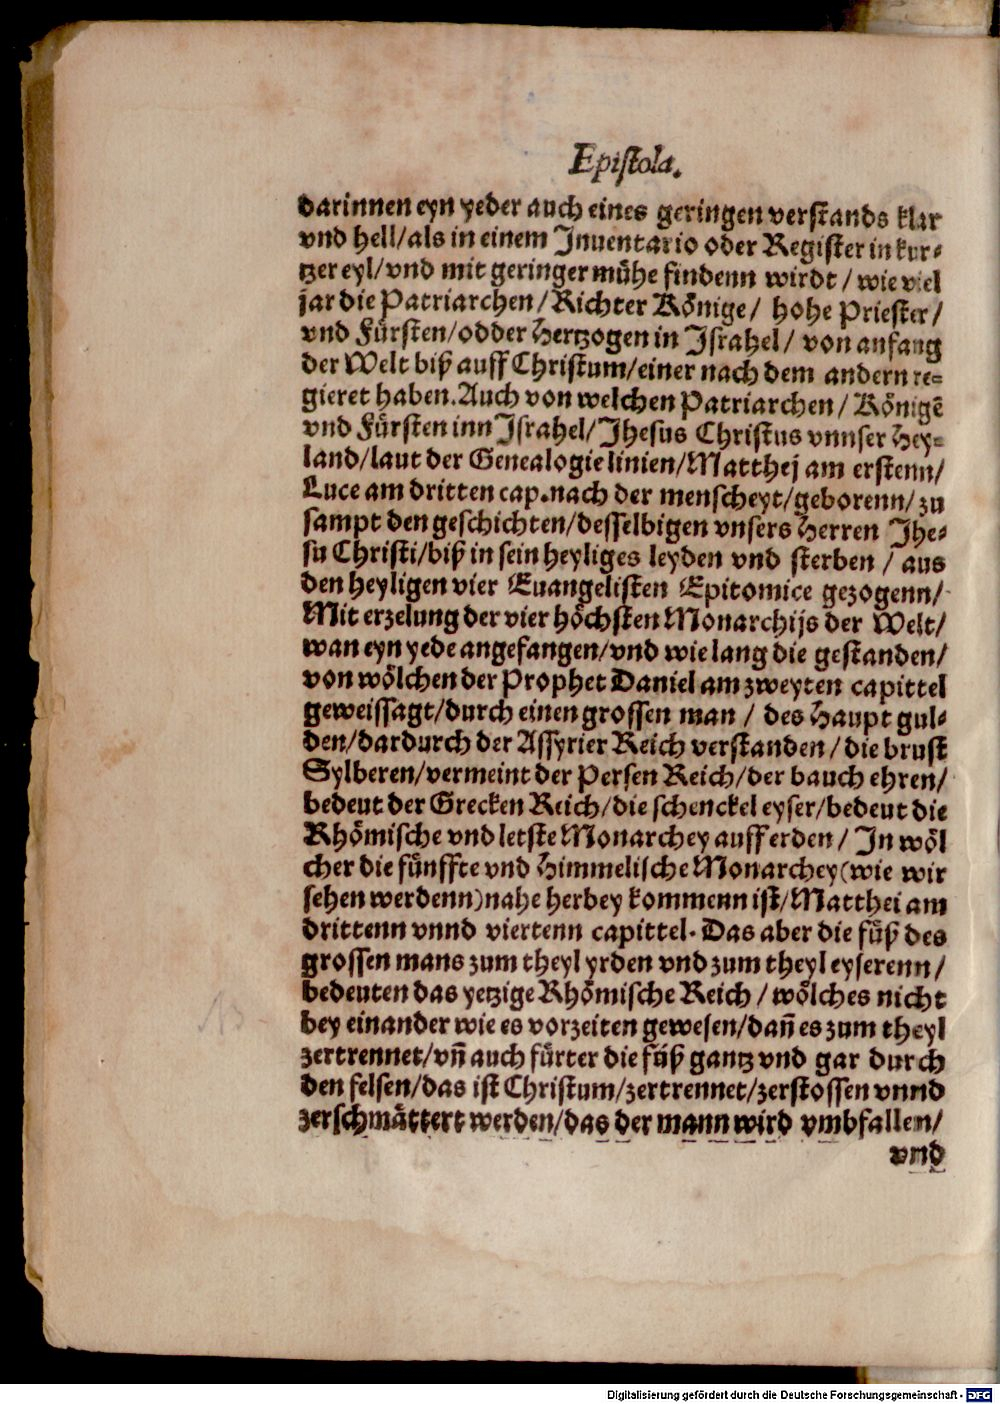 Epistola.
darinnen eyn yeder auch eines geringen verstands klar
vnd hell/als in einem Inuentario oder Register in kur-
tzer eyl/vnd mit geringer mühe findenn wirdt / wie viel
jar die Patriarchen/Richter Könige/ hohe Priester/
vnd Fürsten/odder Hertzogen in Israhel/ von anfang
der Welt biß auff Christum/einer nach dem andern re-
gieret haben.Auch von welchen Patriarchen/ Königẽ
vnd Fürsten inn Israhel/Jhesus Christus vnnser Hey-
land/laut der Genealogie linien/Matthej am erstenn/
Luce am dritten cap.nach der menscheyt/geborenn/ zu
sampt den geschichten/desselbigen vnsers Herren Jhe-
su Christi/biß in sein heyliges leyden vnd sterben / aus
den heyligen vier Euangelisten Epitomice gezogenn/
Mit erzelung der vier höchsten Monarchijs der Welt/
wan eyn yede angefangen/vnd wie lang die gestanden/
von wölchen der Prophet Daniel am zweyten capittel
geweissagt/durch einen grossen man / des Haupt gul-
den/dardurch der Assyrier Reich verstanden/die brust
Sylberen/vermeint der Persen Reich/der bauch ehren/
bedeut der Grecken Reich/die schenckel eyser/bedeut die
Rhömische vnd letste Monarchey auff erden/ In wöl
cher die fünffte vnd Himmelische Monarchey(wie wir
sehen werdenn)nahe herbey kommenn ist/Matthei am
drittenn vnnd viertenn capittel. Das aber die füß des
grossen mans zum theyl yrden vnd zum theyl eyserenn/
bedeuten das yetzige Rhömische Reich / wölches nicht
bey einander wie es vorzeiten gewesen/dañ es zum theyl
zertrennet/vñ auch fürter die füß gantz vnd gar durch
den felsen/das ist Christum/zertrennet/zerstossen vnnd
zerschmättert werden/das der mann wird vmbfallen/
vnd
Digitalisierung gefördert durch die Deutsche Forschungsgemeinschaft - DFG